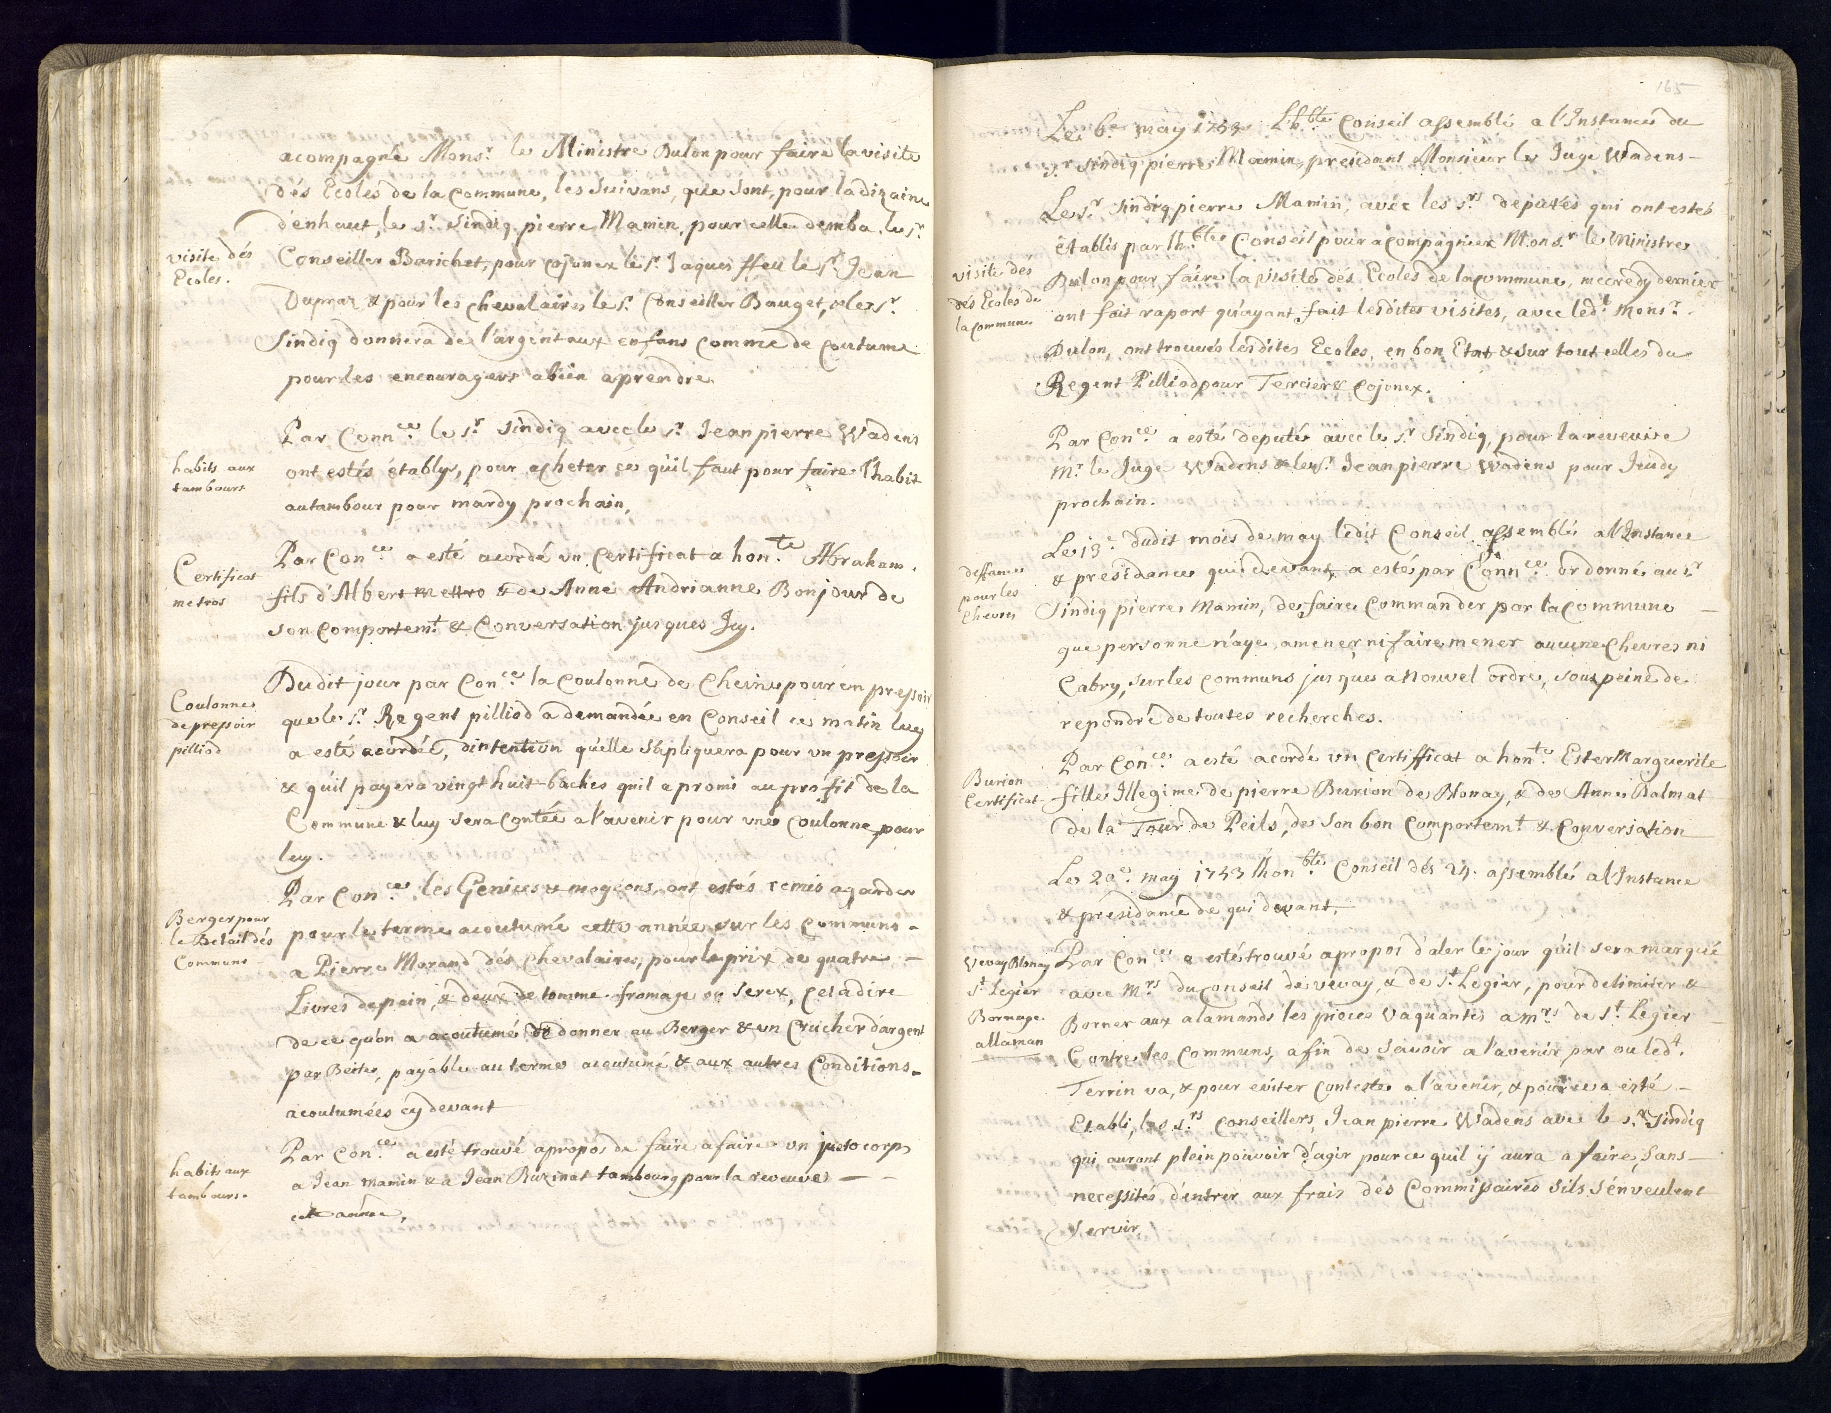 acompagné Mons.r le Ministre Dulon pour faire la visite
dés Ecoles de la Commune, les suivans, que sont, pour la dizaine
d'enhaut, le s.r sindiq pierre Mamin, pour celle demba, le s.r
visite dés
Ecoles.
Conseiller Barichet, pour cojonex le s.r Jaques ffeu le s.r Jean
Dupraz & pour les chevalaires le s.r Conseiller Bauget, & le s.r
sindiq donnera de l'argent aux enfans comme de coutume
pour les encourager a bien aprendre
Par Conn.ce le s.r sindiq avec le s.r Jean pierre Wadens
habits aux
tambours
ont estés établÿ, pour acheter ce qu'il faut pour faire l'habit
au tambour pour mardy prochain,
Par Con.ce a esté acordé un Certificat a hon.te Abraham
Certificat
metros
fils d'Albert mettro & de Anne Andrianne Bonjour de
son comportem.t & Conversation jusques Icy.
Dudit jour par Con.ce la Coulonne de Chesne pour un pressoir
Coulonne
de pressoir
pilliod
que le s.r Regent pilliod a demandée en Conseil ce matin luy
a esté acordée, d'intention qu'elle s'apliquera pour un pressoir
& qu'il payera vingt huit baches qu'il a promi au profit de la
Commune & luy sera contée a l'avenir pour une coulonne pour
luy.
Par Con.ce les Genices & mogeons, ont estés remis a garder
Berger pour
le Betail dés
Communs
pour le terme acoutumé cette année sur les Communs
a Pierre Morand dés Chevalaires, pour le prix de quatre
Livres de pain, & deux de tomme fromage ou serex, cet a dire
de ce qu'on a acoutumé de donner au Berger & un Crucher d'argent
par Beste, payable au terme acoutumé & aux autres Conditions
acoutumées cy devant
Par Con.ce a esté trouvé a propos de faire a faire un justo corps
habits aux
tambours.
a Jean mamin & a Jean Ruzinat tambourg pour la reveuve
cette année,
165
Le 6.e may 1753 L'h.ble Conseil assemblé a l'Instance du
s.r sindiq pierre Mamin, presidant Monsieur le Juge Wadens
Le s.r sindiq pierre Mamin, avec les s.rs deputés qui ont estés
établis par lh.ble Conseil pour acompagner Mons.r le Ministre
visite dés
dés Ecoles de
la commune
Dulon pour faire la visite dés Ecoles de la commune, mecredy dernier
ont fait raport qu'ayant fait lesdites visites, avec led.t Mons.r
Dulon, ont trouvés lesdites Ecoles, en bon Etat & sur tout celles du
Regent Pilliod pour Tercier & Cojonex.
Par Con.ce a esté deputé avec le s.r sindiq, pour la reveuve
M.r le Juge Wadens & le s.r Jean pierre Wadens pour Jeudy
prochain.
Le 13.e dudit mois de may ledit Conseil assemblé a l'Instance
deffances
pour les
chevres
& presidance qui devant, a esté par Conn.ce ordonné au s.r
sindiq pierre Mamin, de faire Commander par la Commune
que personne n'aye, a mener, ni faire mener aucune Chevres ni
Cabry, sur les communs jusques a nouvel ordre, sous peine de
repondre de toutes recherches.
Par Con.ce a esté acordé un Certifficat a hon.te Ester Marguerite
Burion
Certificat
fille Illegime de pierre Burion de Blonay, & de Anne Balmat
de la Tour de Peils, de son bon comportem.t & Conversation
Le 20.e may 1753 lhon.ble Conseil dés 24. assemblé a l'Instance
& presidance de qui devant.
Vevay Blonay
s.t Legier
Bornage
allaman
Par Con.ce a esté trouvé a propos d'aler le jour qu'il sera marqué
avec M.rs du Conseil de vevay, & de s.t Legier, pour delimiter &
Borner aux alamands les pieces vaquantes a m.rs de s.t Legier
Contre les Communs, afin de savoir a l'avenir par ou led.t
Terrin va, & pour eviter conteste a l'avenir, & pour eva esté
Etabli, les s.rs Conseillers, Jean pierre Wadens avec le s.r sindiq
qui auront plein pouvoir d'agir pour ce qu'il ÿ aura a faire, sans
necessités, d'entrer aux frais dés Commissaires sils s'enveulent
servir.